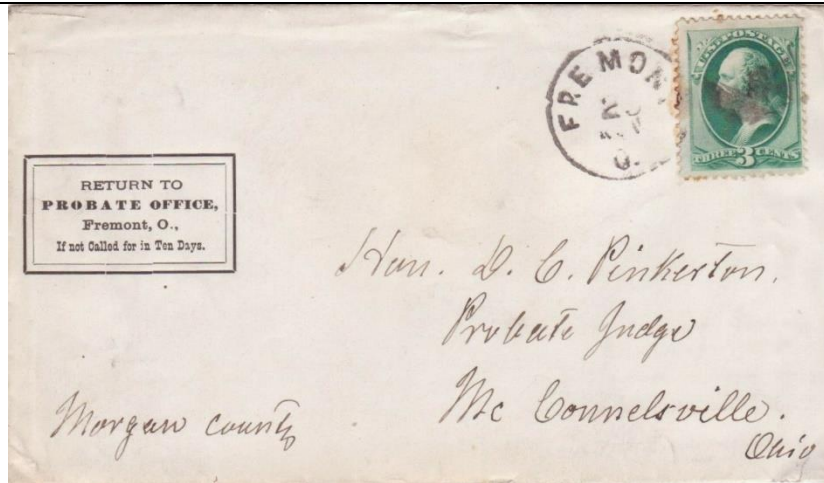 FREMON
O.
U.S. POSTAGE
THREE 3 CENTS
RETURN TO
PROBATE OFFICE,
Fremont, O.,
If not Called for in Ten Days.
Hon. D. C. Pinkerton.
Probate Judge
Mc Connelsville.
Ohio
Morgan County